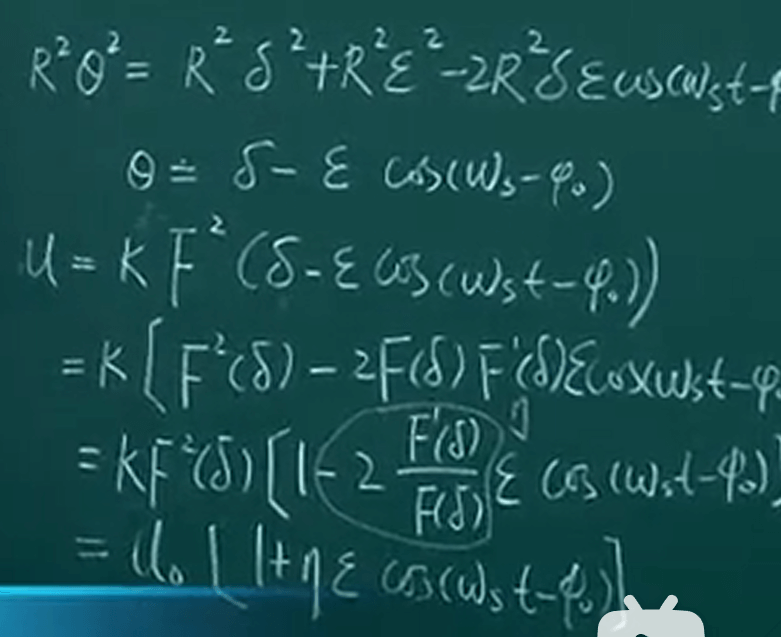 R²θ² = R²δ² + R²ε² - 2R²δε cos(ωₛt - φ
θ ≐ δ - ε cos(ωₛ - φ₀)
U = K F²(δ - ε cos(ωₛt - φ₀))
= K [F²(δ) - 2F(δ) F'(δ) ε cos(ωₛt - φ₀
= KF²(δ) [1 - 2 F'(δ)/F(δ) ε cos(ωₛt - φ₀)]
= U₀ [1 + η ε cos(ωₛt - φ₀)]